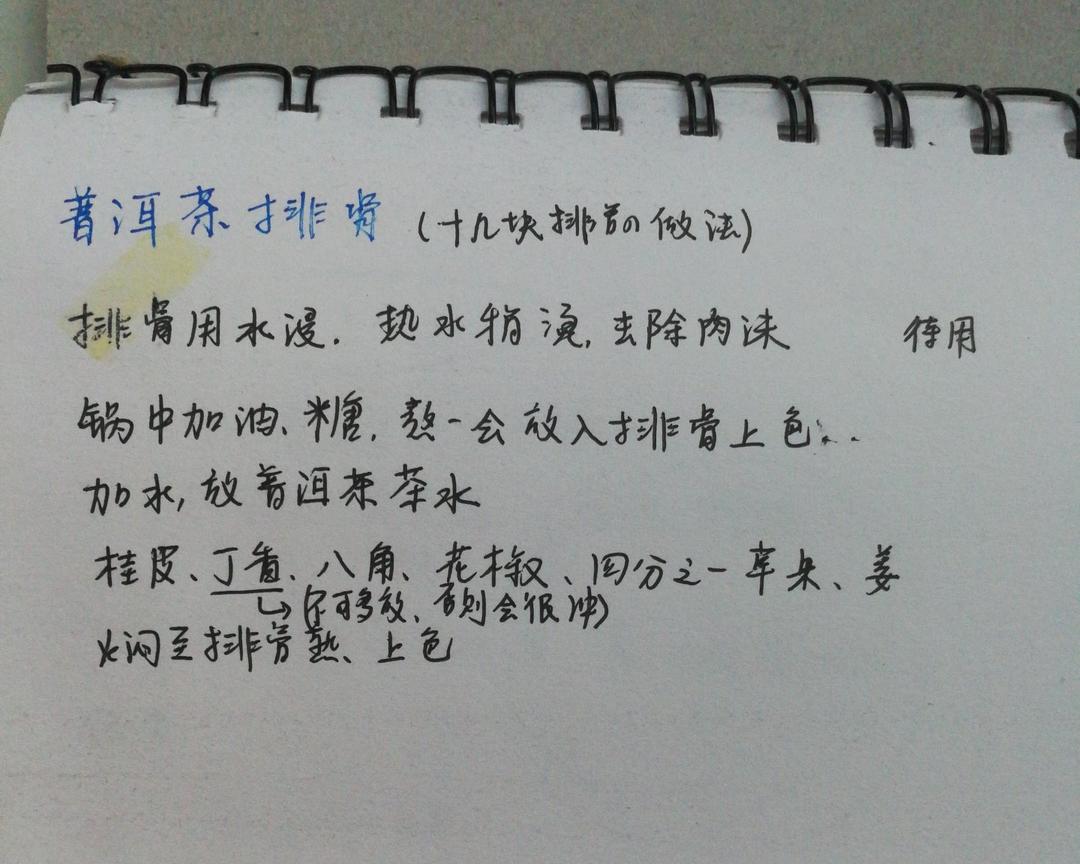 普洱茶排骨（十几块排骨的做法）
排骨用水浸. 热水稍烫, 去除肉沫 待用
锅中加油、糖, 熬一会放入排骨上色...
加水, 放普洱茶茶水
桂皮、丁香、八角、花椒、四分之一草果、姜
(不可多放、否则会很冲)
火闷至排骨熟、上色